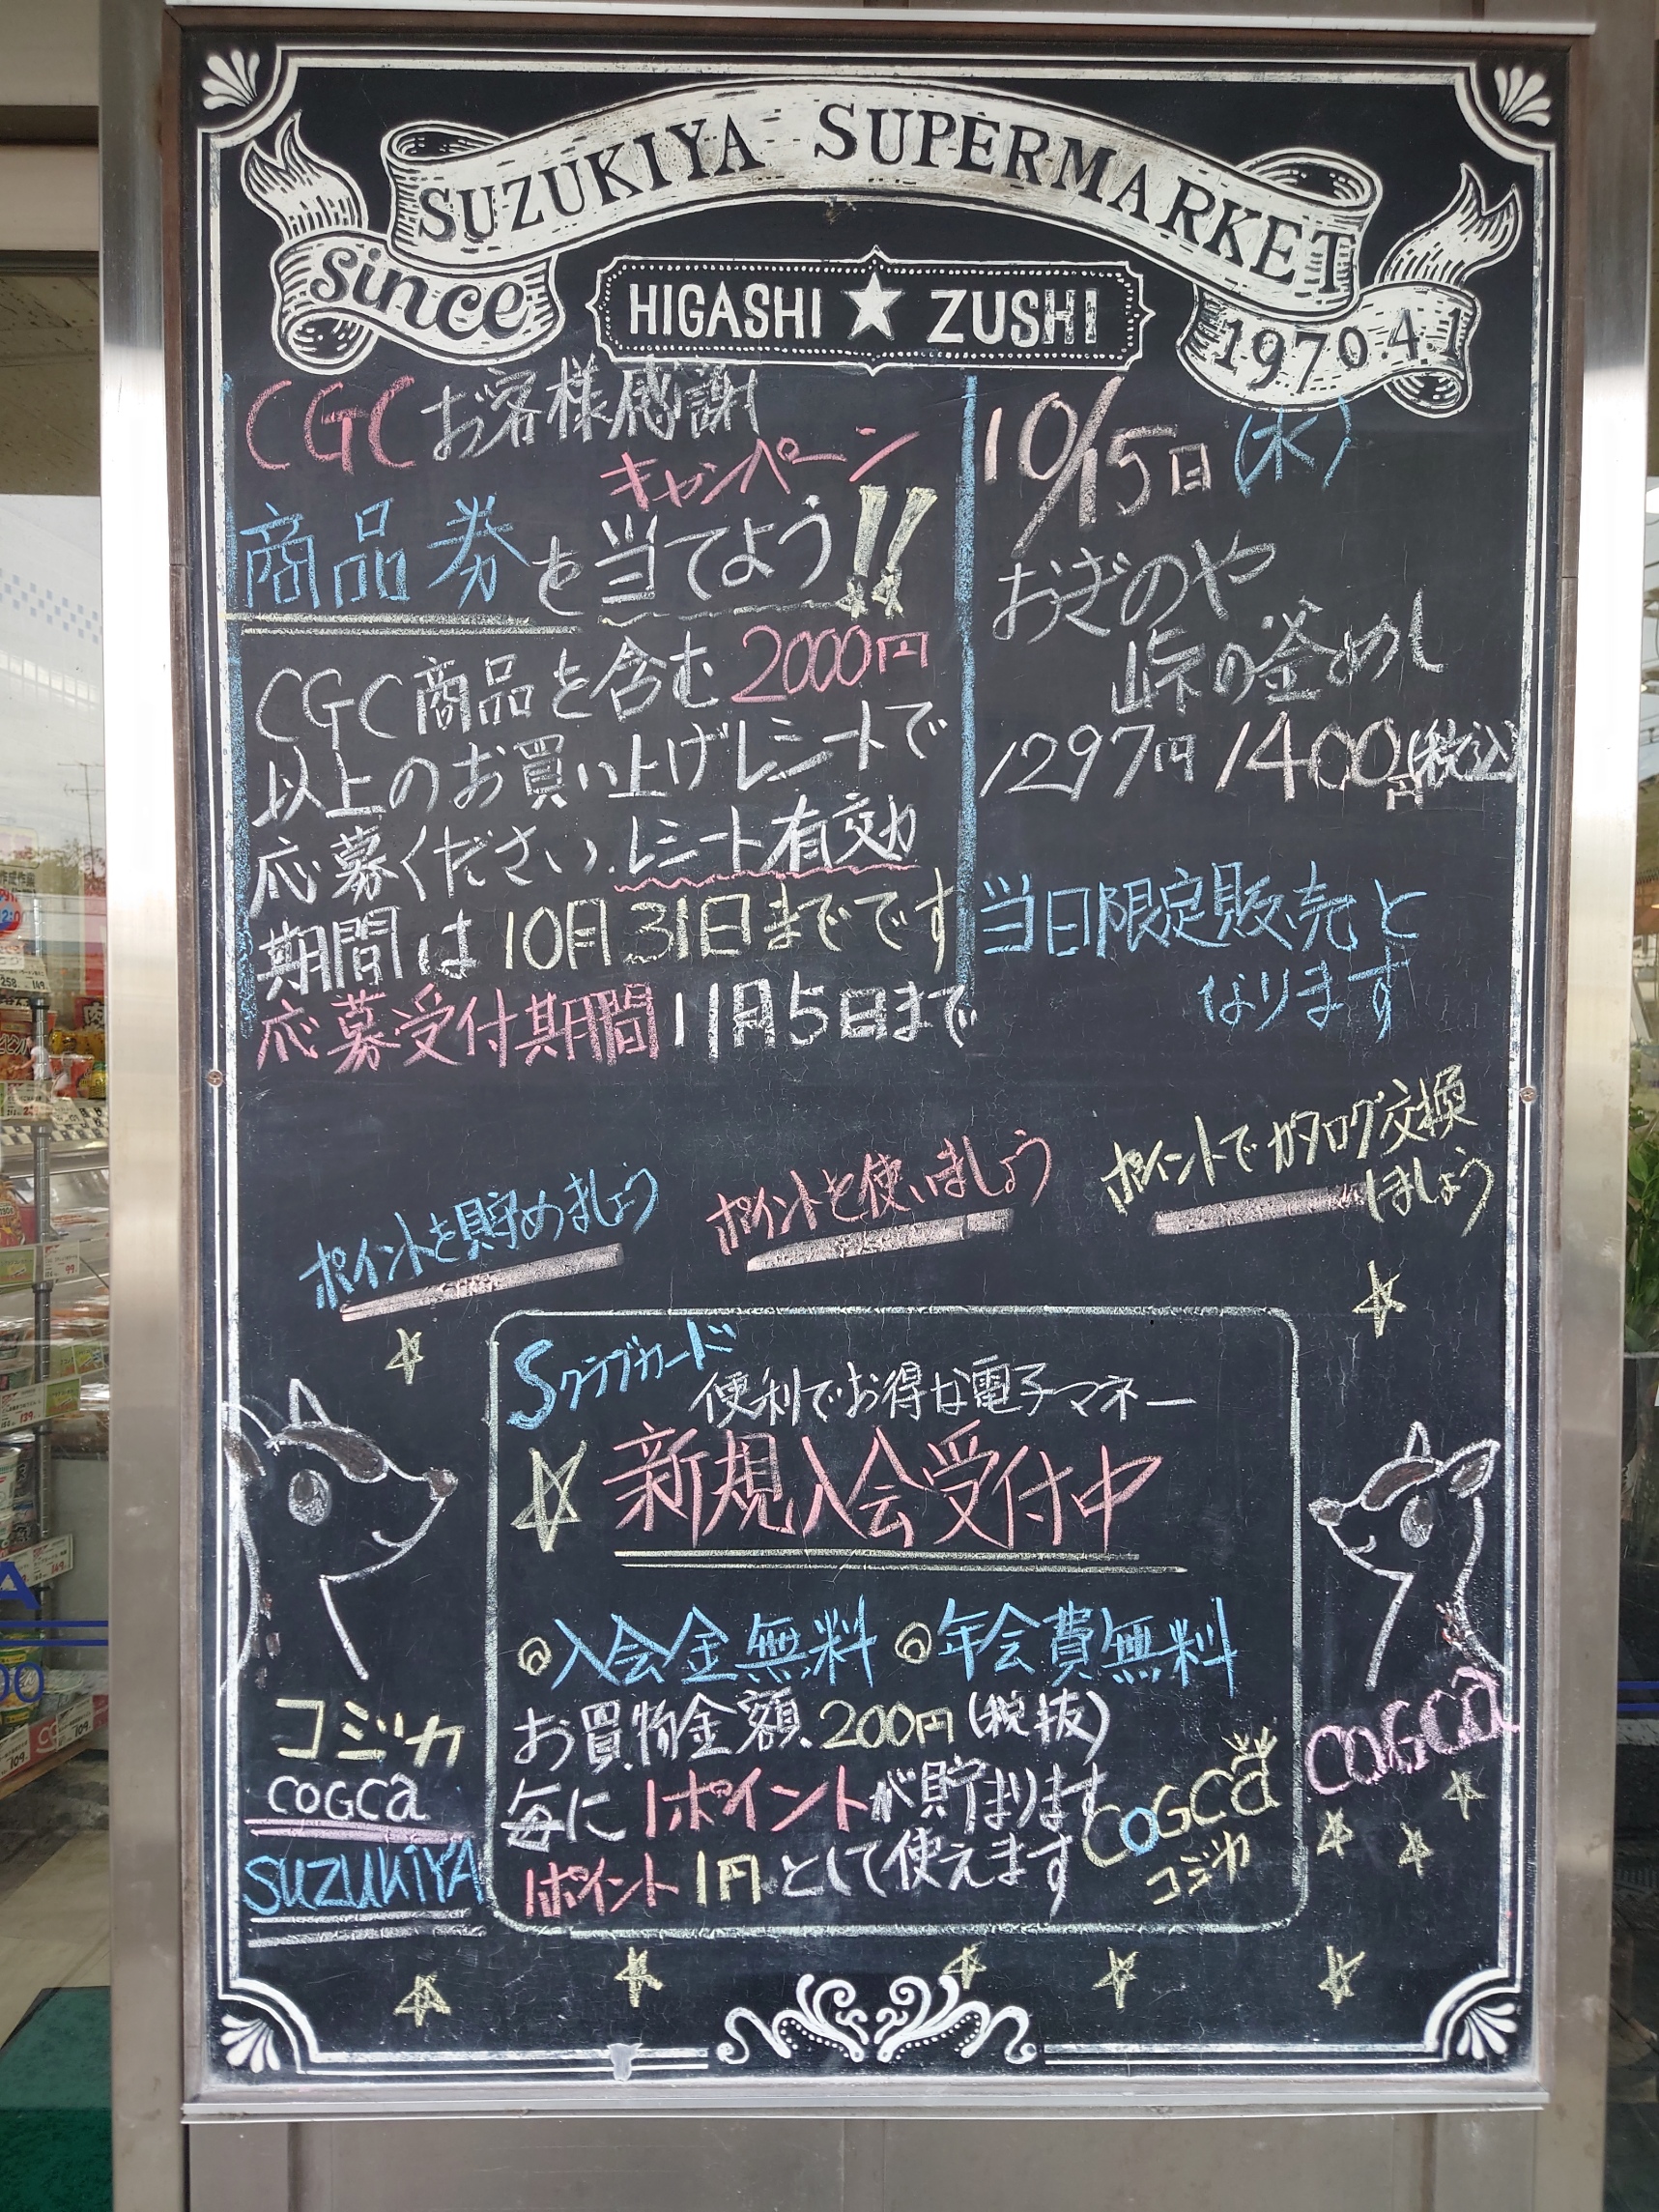 SUZUKIYA SUPERMARKET
since
HIGASHI ★ ZUSHI
1970.4.1
CGCお客様感謝
キャンペーン
商品券を当てよう!!
CGC商品を含む2000円
以上のお買い上げレシートで
応募ください。レシート有効
期間は10月31日までです
応募受付期間11月5日まで
10/15日(水)
おぎのや
峠の釜めし
1297円 1400円(税込)
当日限定販売と
なります
ポイントを貯めましょう
ポイントを使いましょう
ポイントでカタログ交換
しましょう
Sクラブカード
便利でお得な電子マネー
新規入会受付中
◎入会金無料 ◎年会費無料
お買物金額200円(税抜)
毎に1ポイントが貯まります
1ポイント1円として使えます
coGca
コジカ
コジカ
coGca
SUZUKiYA
coGca